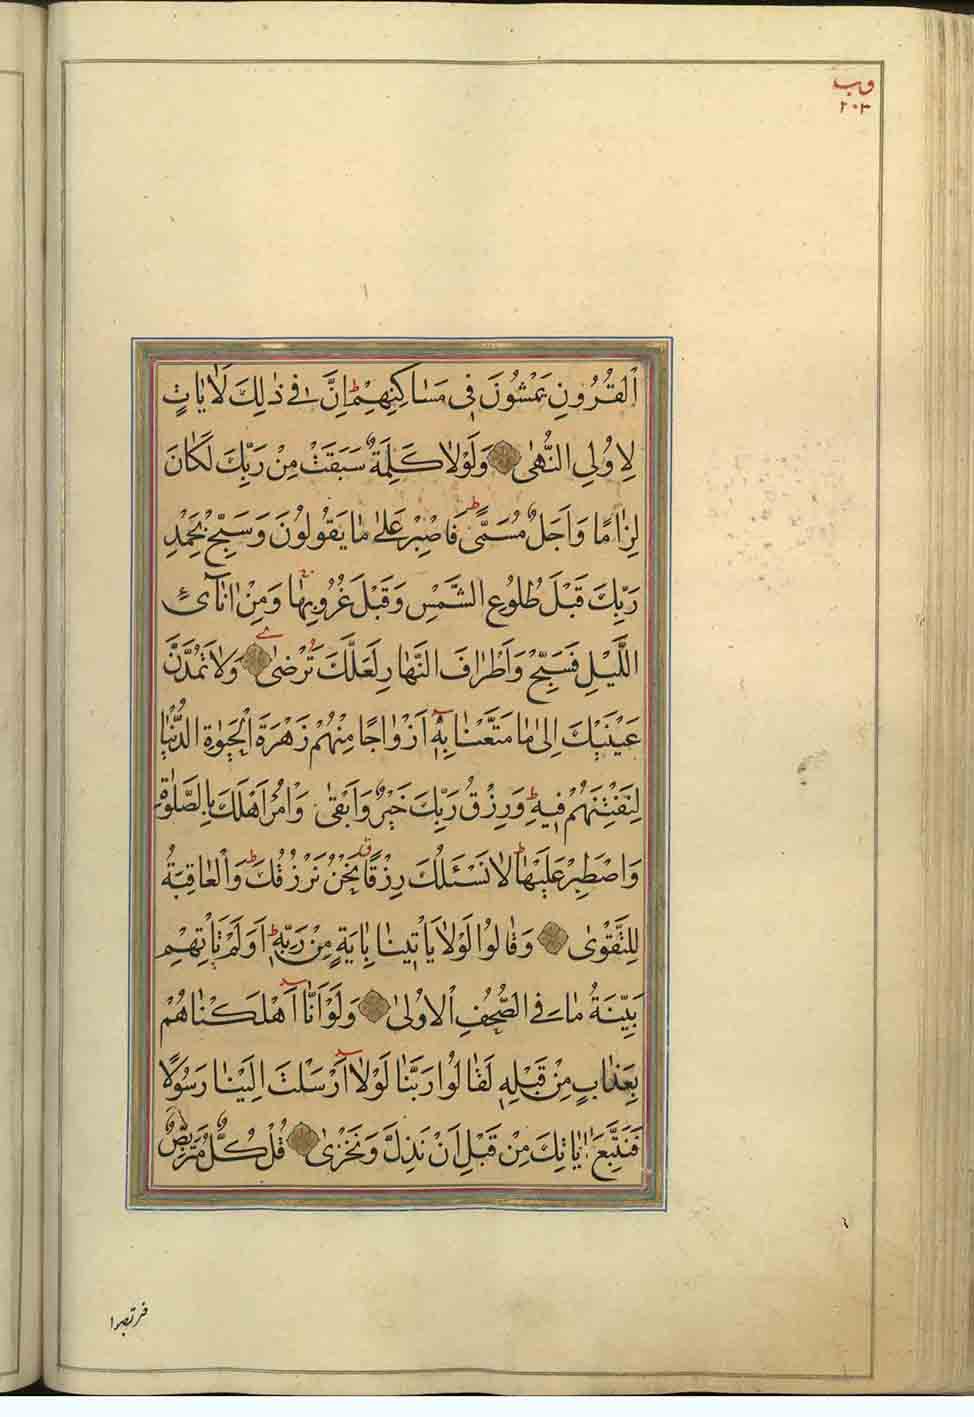 وقف
٢٠٣
اَلْقُرُونِ يَمْشُونَ فِي مَسَاكِنِهِمْ ط اِنَّ فِي ذٰلِكَ لَاٰيَاتٍ
لِاُولِي النُّهٰى وَلَوْلَا كَلِمَةٌ سَبَقَتْ مِنْ رَبِّكَ لَكَانَ
لِزَامًا وَاَجَلٌ مُسَمًّى ط فَاصْبِرْ عَلٰى مَا يَقُولُونَ وَسَبِّحْ بِحَمْدِ
رَبِّكَ قَبْلَ طُلُوعِ الشَّمْسِ وَقَبْلَ غُرُوبِهَا وَمِنْ اٰنَآئِ
اللَّيْلِ فَسَبِّحْ وَاَطْرَافَ النَّهَارِ لَعَلَّكَ تَرْضٰى وَلَا تَمُدَّنَّ
عَيْنَيْكَ اِلٰى مَا مَتَّعْنَا بِهٖٓ اَزْوَاجًا مِنْهُمْ زَهْرَةَ الْحَيٰوةِ الدُّنْيَا
لِنَفْتِنَهُمْ فِيهِ ط وَرِزْقُ رَبِّكَ خَيْرٌ وَاَبْقٰى وَاْمُرْ اَهْلَكَ بِالصَّلٰوةِ
وَاصْطَبِرْ عَلَيْهَا ط لَا نَسْئَلُكَ رِزْقًا نَحْنُ نَرْزُقُكَ ط وَالْعَاقِبَةُ
لِلتَّقْوٰى وَقَالُوا لَوْلَا يَاْتِينَا بِاٰيَةٍ مِنْ رَبِّهٖ ط اَوَلَمْ تَاْتِهِمْ
بَيِّنَةُ مَا فِي الصُّحُفِ الْاُولٰى وَلَوْ اَنَّآ اَهْلَكْنَاهُمْ
بِعَذَابٍ مِنْ قَبْلِهٖ لَقَالُوا رَبَّنَا لَوْلَآ اَرْسَلْتَ اِلَيْنَا رَسُولًا
فَنَتَّبِعَ اٰيَاتِكَ مِنْ قَبْلِ اَنْ نَذِلَّ وَنَخْزٰى قُلْ كُلٌّ مُتَرَبِّصٌ
فتربصوا